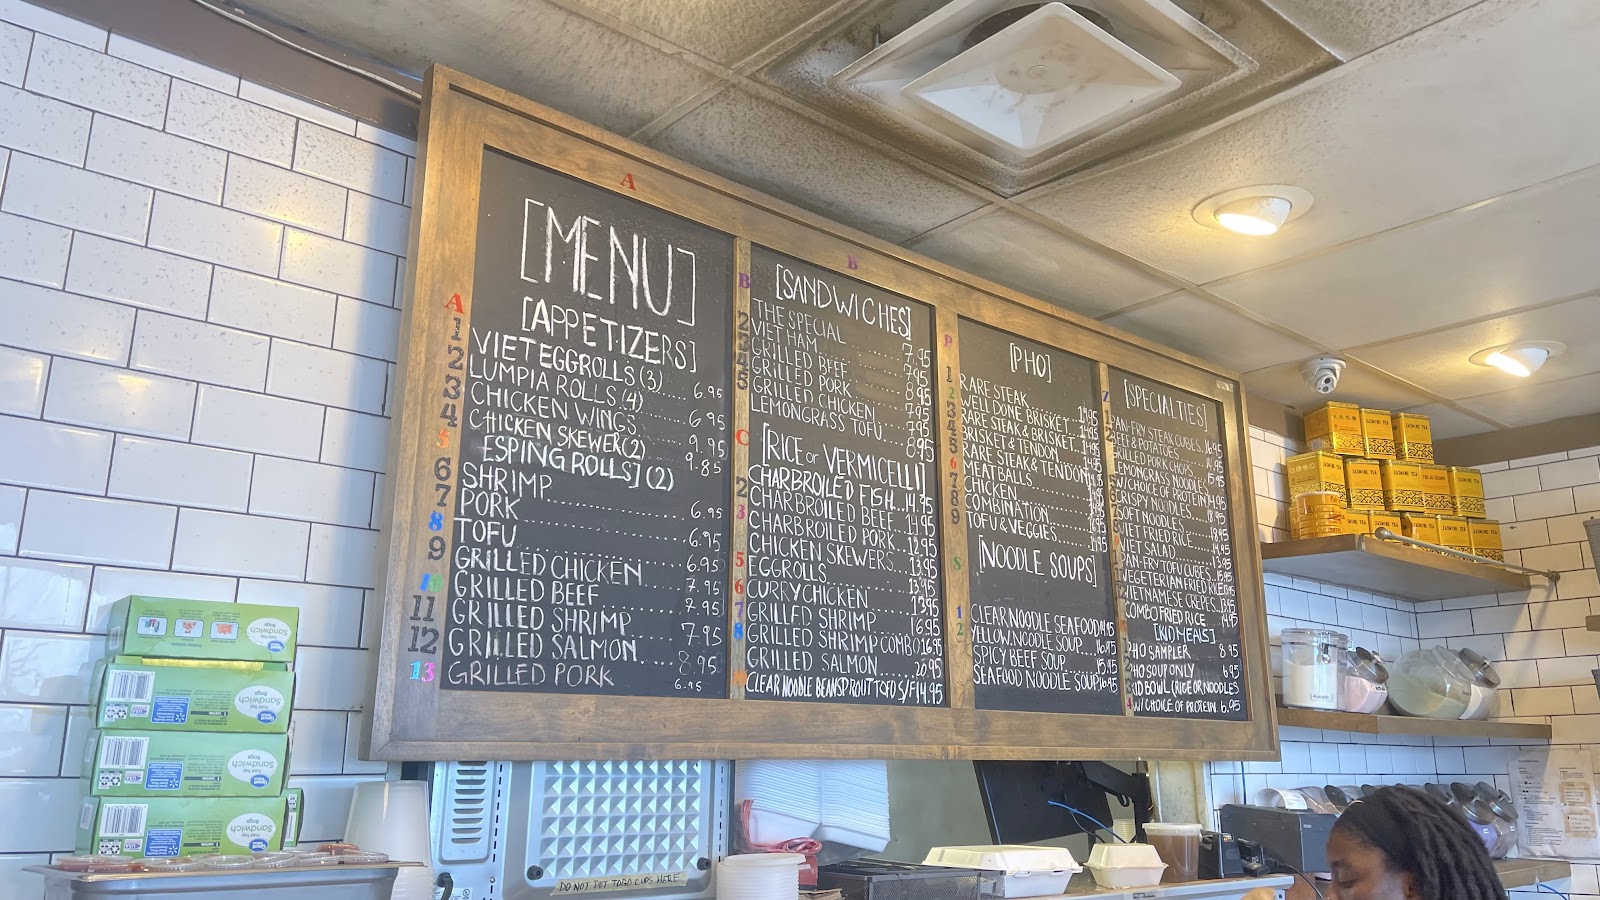 A
[MENU]
A
[APPETIZERS]
1 VIET EGGROLLS (3) 6.95
2 LUMPIA ROLLS (4) 6.95
3 CHICKEN WINGS 9.95
4 CHICKEN SKEWER (2) 9.85
5 [SPRING ROLLS] (2)
6 SHRIMP 6.95
7 PORK 6.95
8 TOFU 6.95
9 GRILLED CHICKEN 7.95
10 GRILLED BEEF 7.95
11 GRILLED SHRIMP 7.95
12 GRILLED SALMON 8.95
13 GRILLED PORK 6.95
B
B
[SANDWICHES]
THE SPECIAL 7.95
2 VIET HAM 7.95
3 GRILLED BEEF 8.95
4 GRILLED PORK 7.95
5 GRILLED CHICKEN 7.95
LEMONGRASS TOFU 8.95
C
[RICE OR VERMICELLI]
CHARBROILED FISH 14.95
2 CHARBROILED BEEF 14.95
3 CHARBROILED PORK 12.95
CHICKEN SKEWERS 13.95
5 EGGROLLS 13.95
6 CURRY CHICKEN 13.95
7 GRILLED SHRIMP 16.95
8 GRILLED SHRIMP COMBO 16.95
GRILLED SALMON 20.95
CLEAR NOODLE BEANSPROUT TOFO S/F 14.95
P
[PHO]
1 RARE STEAK 14.95
2 WELL DONE BRISKET 14.95
3 RARE STEAK & BRISKET 14.95
4 BRISKET & TENDON 14.95
5 RARE STEAK & TENDON
6 MEAT BALLS
7 CHICKEN
8 COMBINATION
9 TOFU & VEGGIES
S
[NOODLE SOUPS]
1 CLEAR NOODLE SEAFOOD
2 YELLOW NOODLE SOUP 16.95
SPICY BEEF SOUP 15.95
SEAFOOD NOODLE SOUP 16.95
Z
[SPECIALTIES]
PAN-FRY STEAK CUBES 16.95
BEEF & POTATOES
GRILLED PORK CHOPS 14.95
LEMONGRASS NOODLE 15.95
W/ CHOICE OF PROTEIN 14.95
CRISPY NOODLES 18.95
SOFT NOODLES
VIET FRIED RICE 18.95
VIET SALAD 14.95
PAN-FRY TOFU CUBES
VEGETERIAN FRIED RICE
VIETNAMESE CREPES
COMBO FRIED RICE 14.95
[KID MEALS]
PHO SAMPLER 8.95
PHO SOUP ONLY 6.95
KID BOWL (RICE OR NOODLES
W/ CHOICE OF PROTEIN 6.95
JASMINE TEA
JASMINE TEA
JASMINE TEA
Sandwich
Bags
great value
DO NOT PUT TOGO CUPS HERE